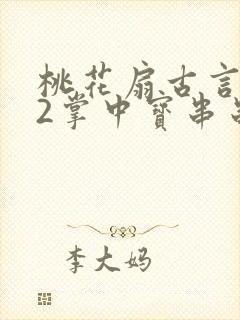 桃花扇古言
2掌中寶串
李大妈